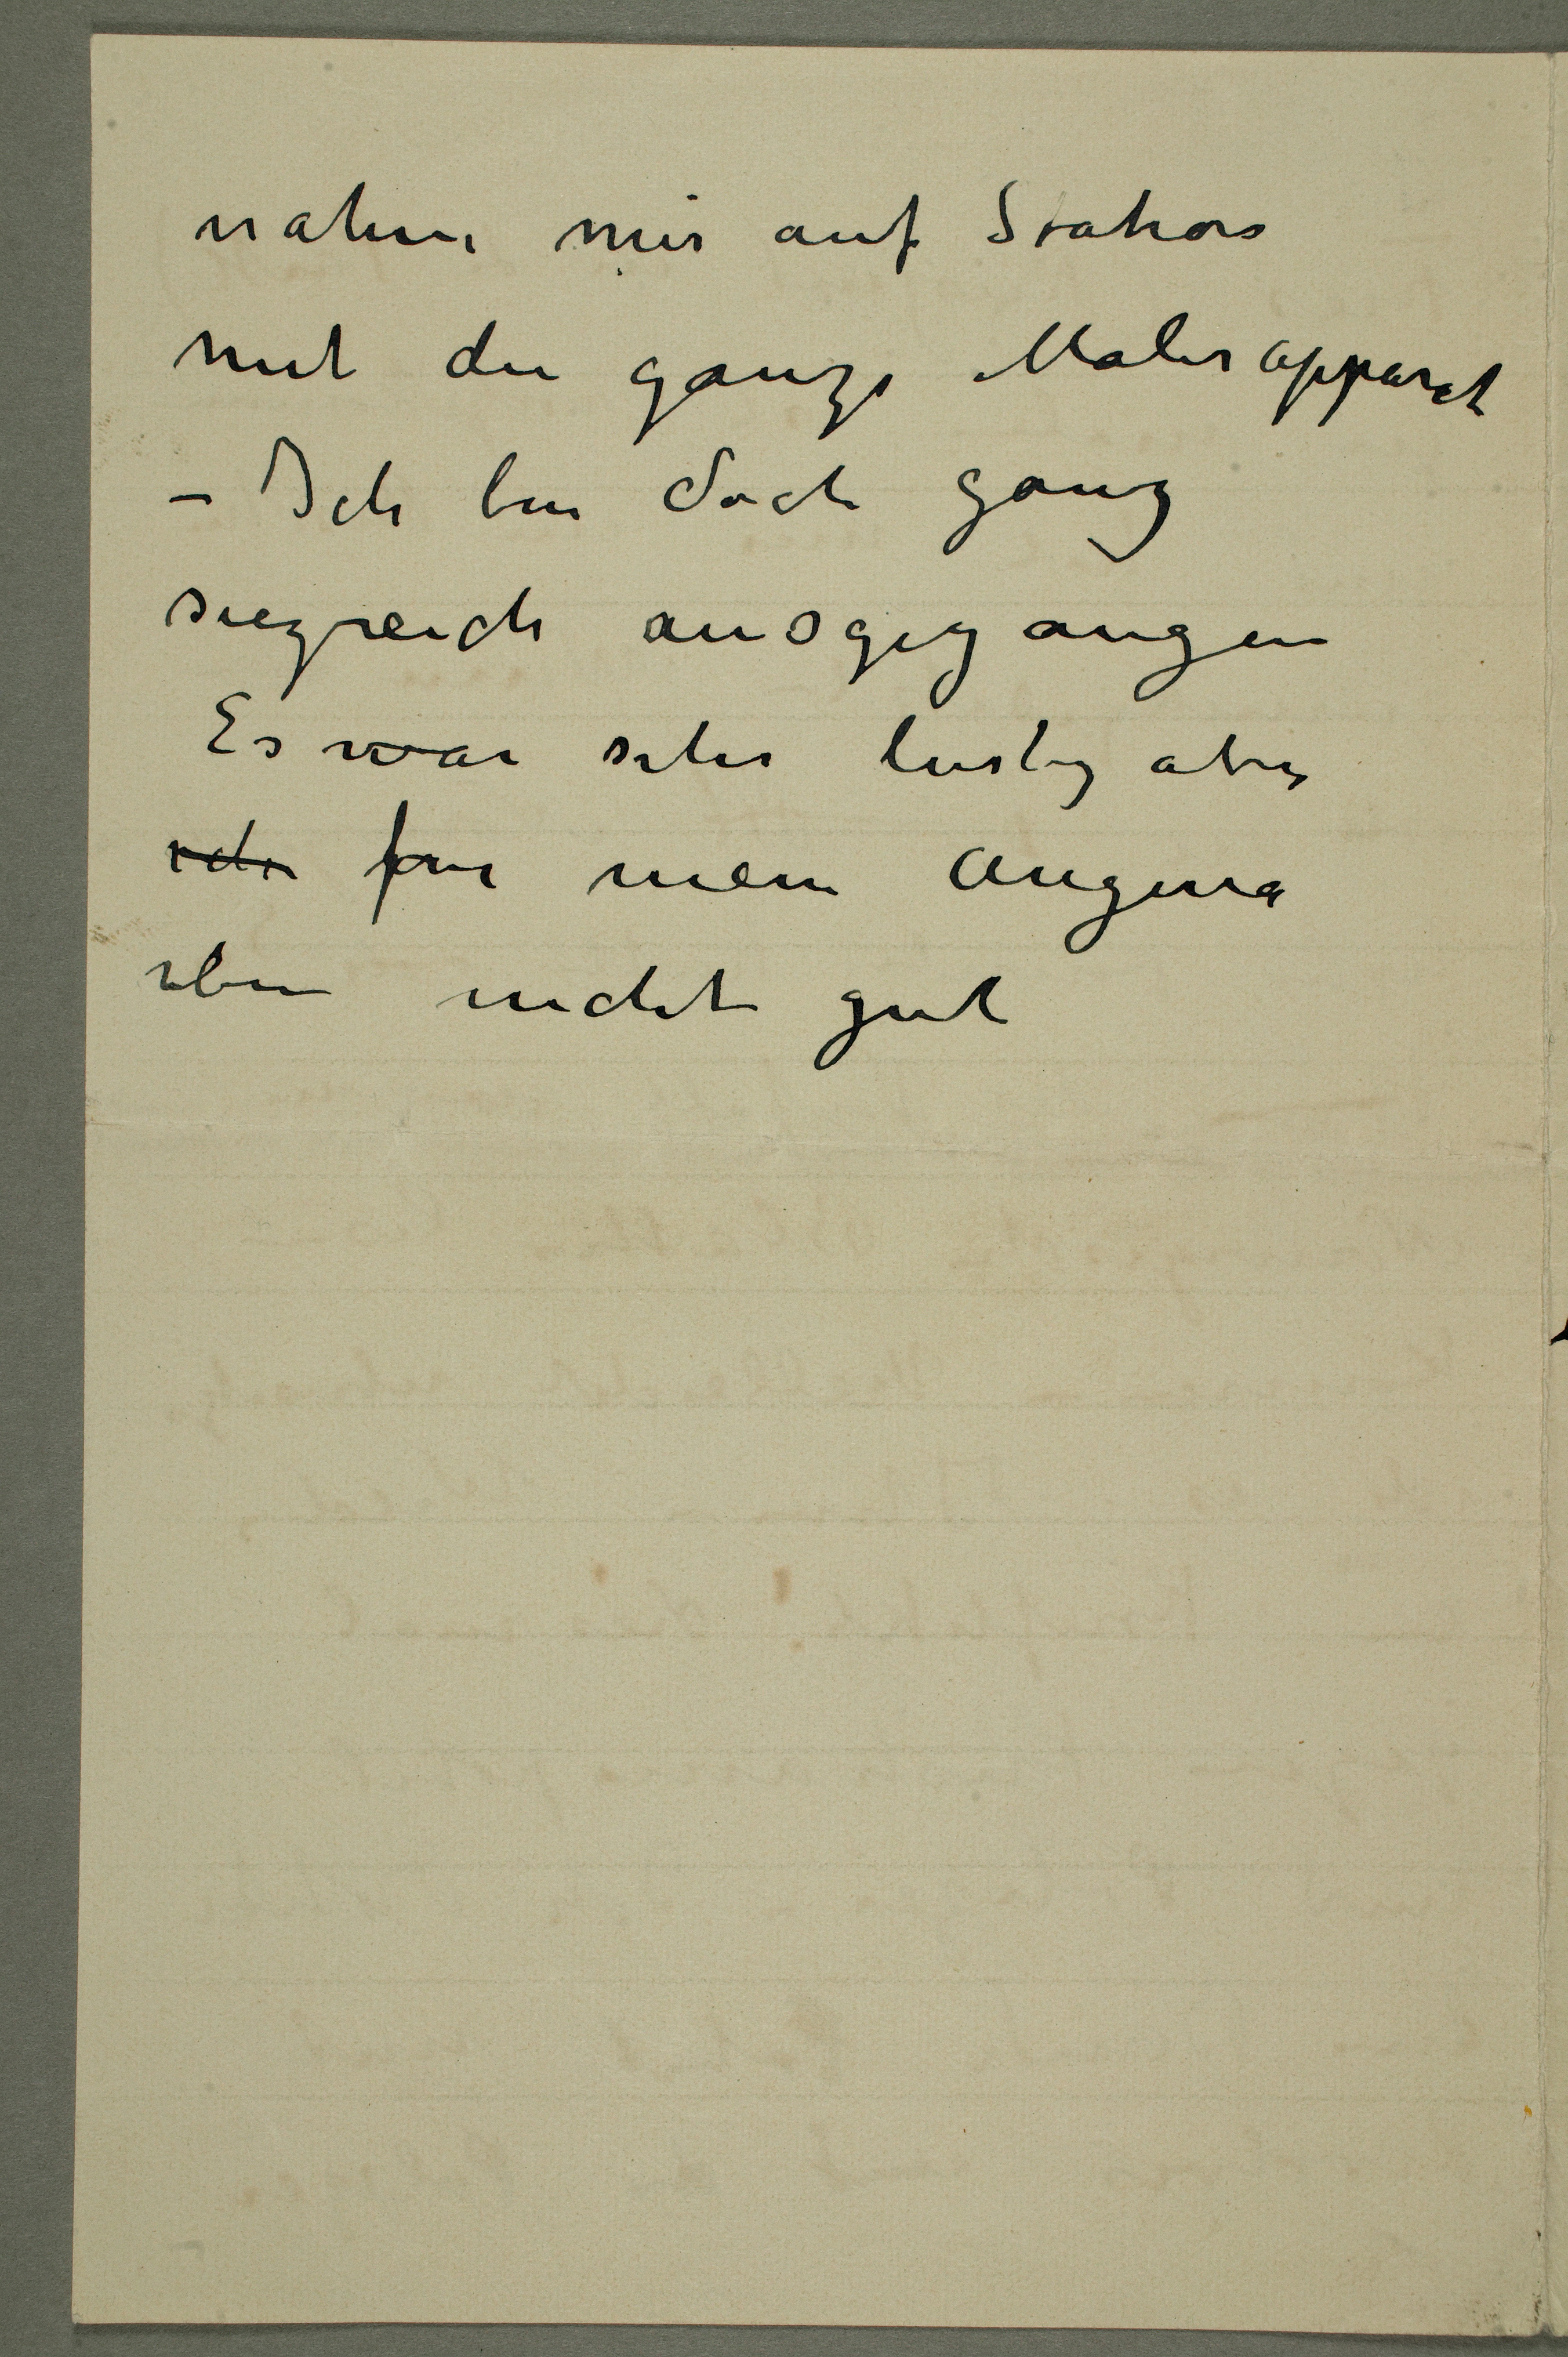 nahm mir auf Station
mit die ganze Malerapparat
– Ich bin doch ganz
siegreich ausgegangen
Es war sehr lustig aber
ich für mein Angina
eben nicht gut